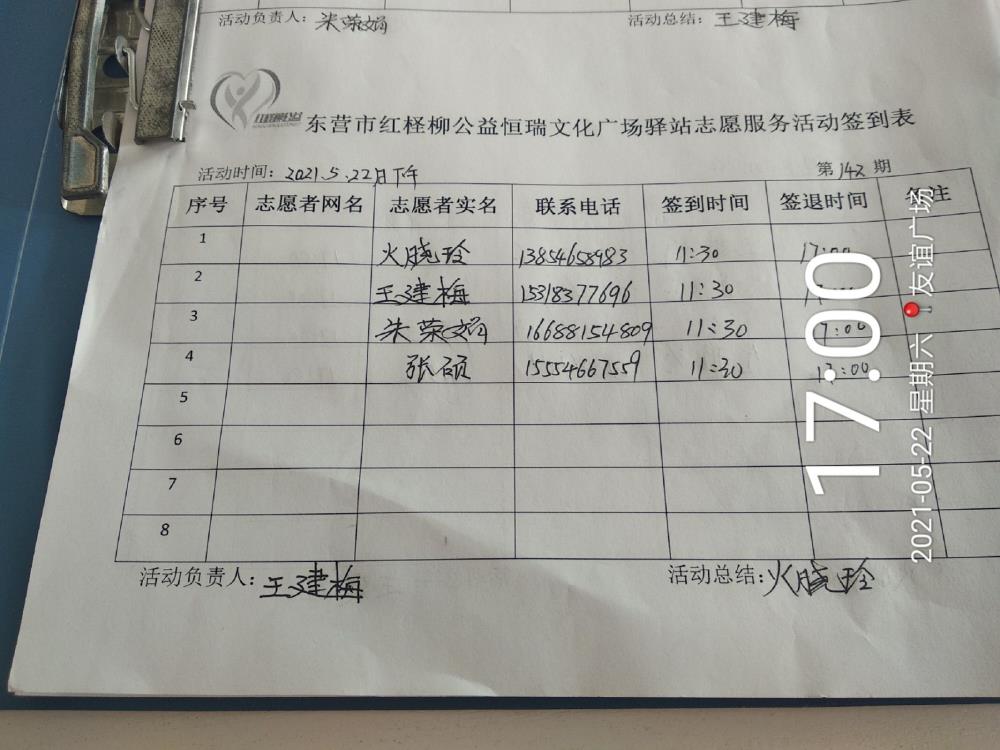 活动负责人：朱荣娟 活动总结：王建梅
红柽柳公益
东营市红柽柳公益恒瑞文化广场驿站志愿服务活动签到表
活动时间：2021.5.22日下午 第142期
序号 志愿者网名 志愿者实名 联系电话 签到时间 签退时间 备注
1 火晓玲 13854658983 11:30 17:00
2 王建梅 15318377696 11:30
3 朱荣娟 16688154809 11:30 17:00
4 张硕 15554667559 11:30 17:00
5
6
7
8
活动负责人：王建梅 活动总结：火晓玲
17:00
2021-05-22 星期六 友谊广场